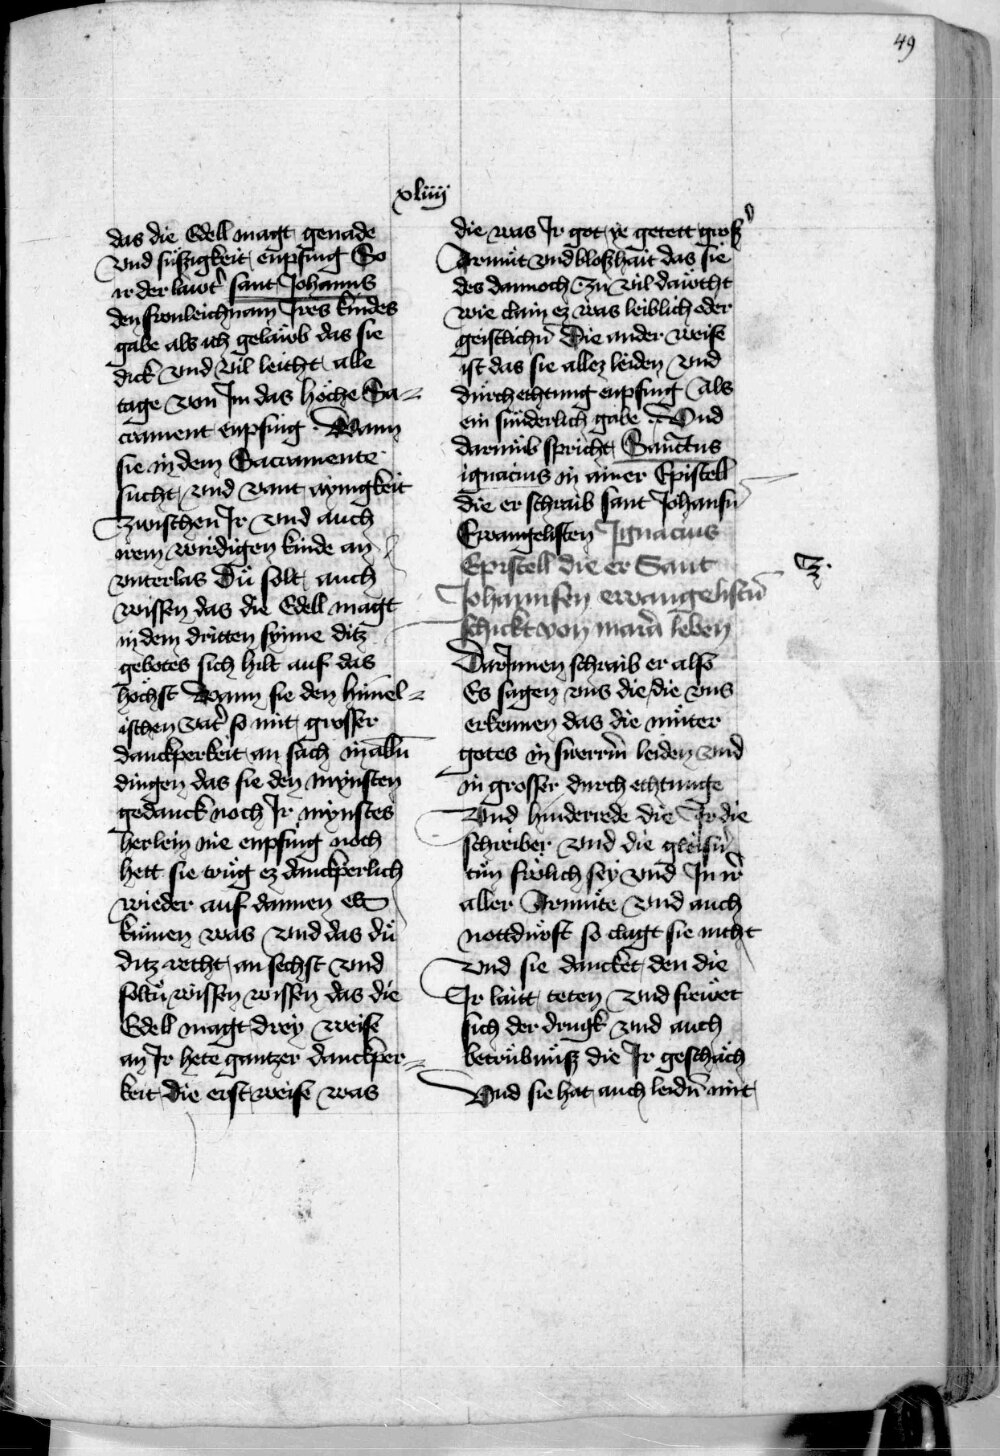 49
xliiij
das die Edell magt genade
vnd süszigkeit enpfing So
ir der lawt̛ sant Johanns
den fronleichnam Jres kindes
gabe als ich gelaẅb das sie
dick vnd vil leicht alle
tage von Jm das höche Sa-
crament enpfing · Wann
sie in dem Sacramente
sucht vnd vant aynigkeit
zwischen Jr vnd auch
irem wirdigen kinde an
vnterlas Dü solt auch
wissen das die Edell magt
in dem dritten synne ditz
gebotes sich hilt auf das
höchst Wann sie den himel-
ischen vat̛ so mit grosser
danckperkeit an sach in alln̄
dingen das sie den mynsten
gedanck noch Jr mynstes
herlein nie enpfing noch
hett sie trüg ez danckperlich
wieder auf dannen ez
kümen was vnd das dü
ditz recht an sechst vnd
soltü wissen wissen das die
Edell magt drey weise
an Jr hete gantzer danckper-
keit die erst weise was
die was Jr got ye getett groß̛
Armüt vnd bloßhait das sie
des dannoch zu vil dawcht
wie clain ez was leiblich oder
geistlichn̄ Die ander weise
ist das sie allez leiden vnd
durchechtung enpfing Als
ein sünderlich gabe Vnd
darumb spricht Sanctus
ignacius in ainer Epistell
die er schraib sant Johansn̄
Ewangelisten Jgnacius
Epistell die er Sant
Johannsen ewangelistn̄
schickt von maria leben
z·
Dar Jnnen schraib er also
Es sagen vns die die vns
erkennen das die müter
gotes in swerrm̄ leiden vnd
in grosser durchechtunge
Vnd hinderrede die Jr die
schreiber vnd die gleisn̛
tun frölich sey vnd Jn ir̛
aller Armüte vnd auch
nottdürft so clagt sie nicht
vnd sie dancket den die
Jr laitt teten vnd frewet
sich der drugk vnd auch
betrübnüsz die Jr geschach
Vnd sie hat auch leidn̄ mit